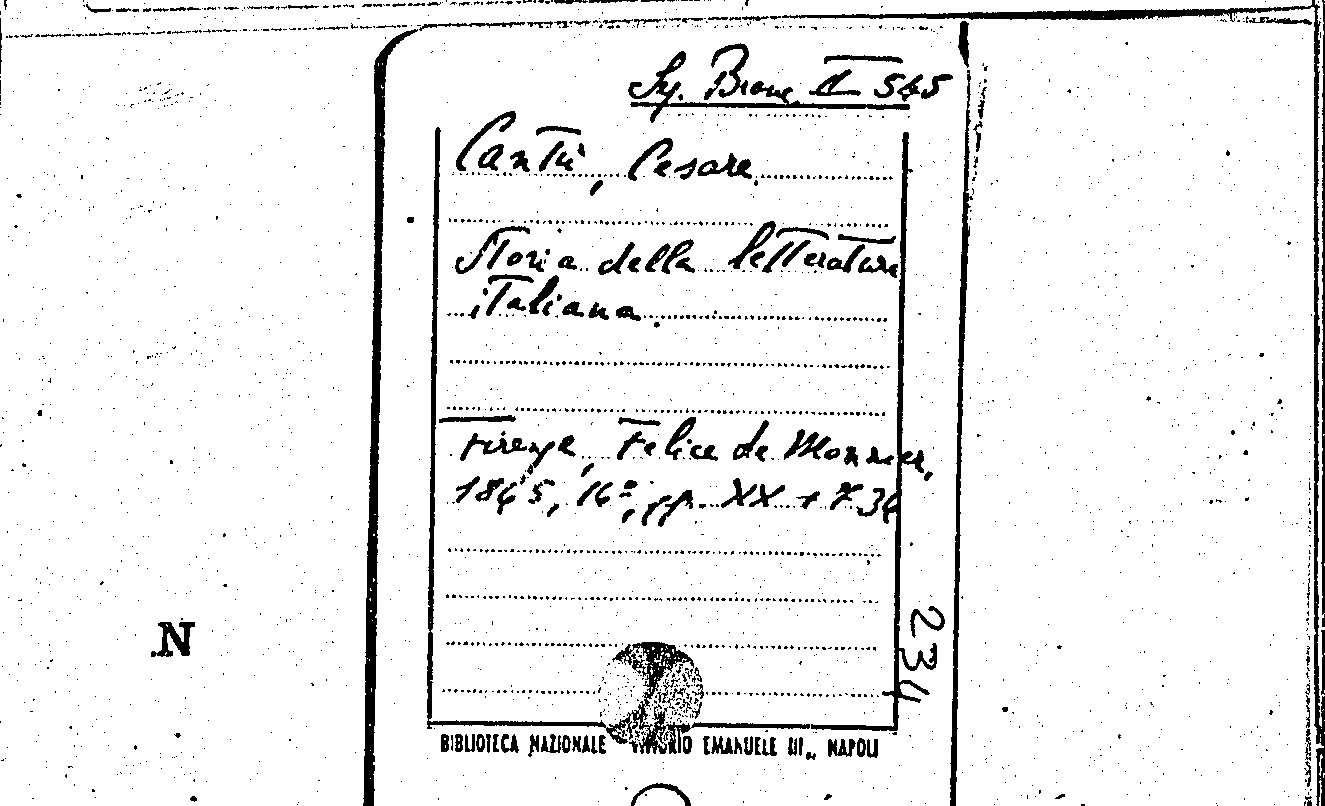 Sy. Branc. II 545
Cantù, Cesare.
Storia della letteratura
italiana.
Firenze, Felice Le Monnier,
1865, 16º, pp. XX + 734
234
N
BIBLIOTECA NAZIONALE VITTORIO EMANUELE III„ NAPOLI